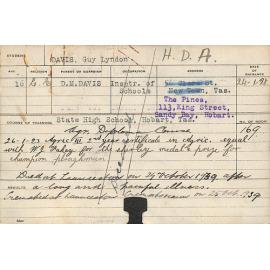 STUDENT
DAVIS, Guy Lyndon
H.D.A.
AGE RELIGION PARENT OR GUARDIAN OCCUPATION ADDRESS DATE OF ENTRANCE
16 C.E. D.M.DAVIS Insptr. of Schools
New Town, Tas.
The Pines,
113, King Street,
Sandy Bay, Hobart.
State High School, Hobart, Tas.
Agr. Diploma Course
169
26-1-23 Agric III 2nd year certificate in Agric. equal
with W.J. Fahey for the medal & prize for
champion ploughman
Died at Launceston on 24 October 1939 after
a long and painful illness.
Cremated at Launceston Crematorium on 25 Oct 1939